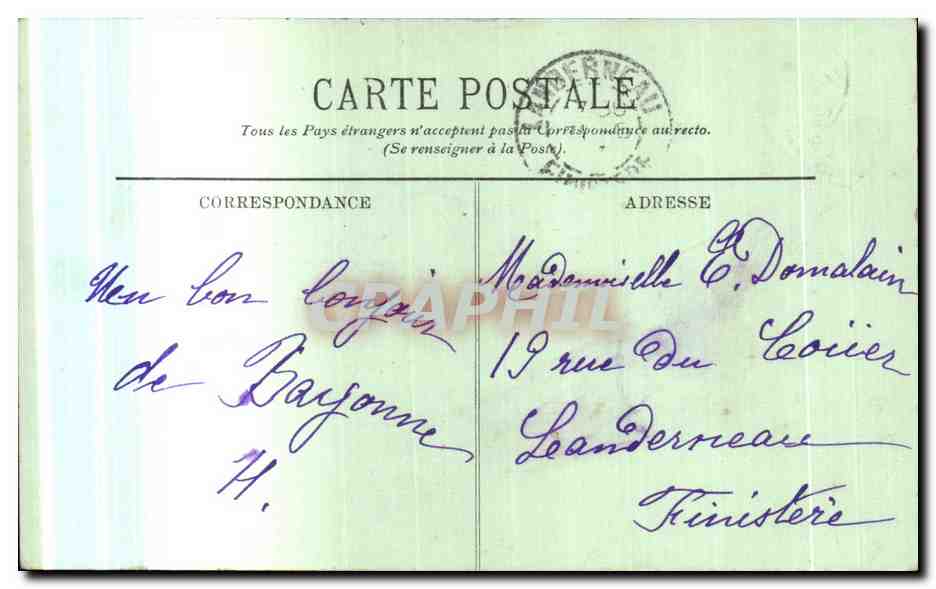 CARTE POSTALE
Tous les Pays étrangers n'acceptent pas la Correspondance au recto.
(Se renseigner à la Poste).
LANDERNEAU
FINISTÈRE
CORRESPONDANCE
ADRESSE
Un bon bonjour
de Bayonne
H.
Mademoiselle E. Domalain
19 rue du
Landerneau
Finistère
CPAPHIL